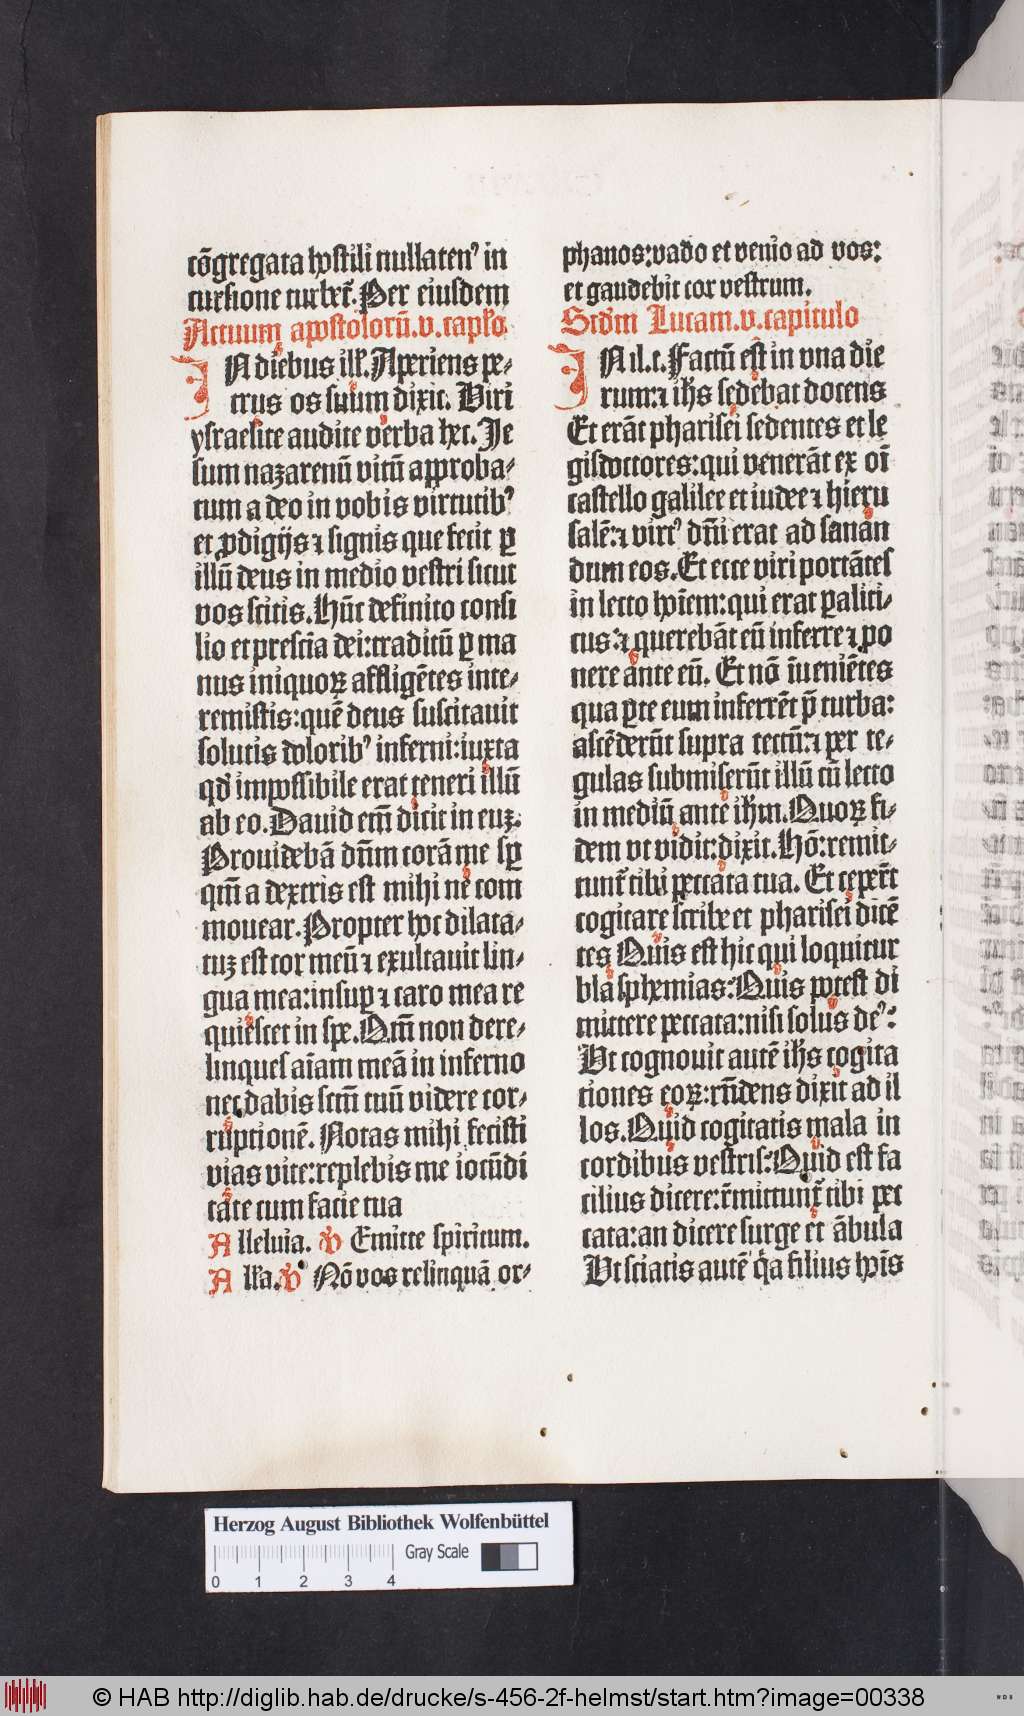 cōgregata hostili nullaten⁹ in
cursione turbet̄. Per eiusdem
Actuum apostolorū.v.caplo
IN diebus ill̄. Aperiens pe-
trus os suum dixit. Viri
ysraelite audite verba hec. Je
sum nazarenū virū approba-
tum a deo in vobis virtutib⁹
et ꝓdigijs ⁊ signis que fecit ꝑ
illū deus in medio vestri sicut
vos scitis. Hūc definito consi
lio et presciā dei: traditū ꝑ ma
nus iniquoꝝ affligētes inte-
remistis: quē deus suscitauit
solutis dolorib⁹ inferni: iuxta
qd̛ impossibile erat teneri illū
ab eo. Dauid em̄ dicit in euꝫ.
Prouidebā dn̄m corā me sꝑ
qm̄ a dextris est mihi ne com
mouear. Propter hoc dilata-
tuꝫ est cor meū ⁊ exultauit lin-
gua mea: insuꝑ ⁊ caro mea re
quiescet in spe. Qm̄ non dere-
linques aīam meā in inferno
nec dabis sctm̄ tuū videre cor-
ruptionē. Notas mihi fecisti
vias vite: replebis me iocūdi
tate cum facie tua
Alleluia. ℣ Emitte spiritum.
All'a. ℣ Nō vos relinquā or-
phanos: vado et venio ad vos:
et gaudebit cor vestrum.
Scd̛m Lucam.v.capitulo
IN il.t. Factū est in vna die
rum: ⁊ ih̄s sedebat docens
Et erāt pharisei sedentes et le
gisdoctores: qui venerāt ex oī
castello galilee et iudee ⁊ hieru
salē: ⁊ virt⁹ dn̄i erat ad sanan
dum eos. Et ecce viri portātes
in lecto hoīem: qui erat ꝑaliti-
cus: ⁊ querebāt eū inferre ⁊ po
nere ante eū. Et nō īueniētes
qua ꝑte eum inferrēt p̄ turba:
ascēderūt supra tectū: ⁊ per te-
gulas submiserūt illū cū lecto
in mediū ante ihm̄. Quoꝝ fi-
dem vt vidit: dixit. Hō: remit-
tunt̄ tibi peccata tua. Et ceper̄t
cogitare scribe et pharisei dicē
tes Quis est hic qui loquitur
blasphemias: Quis potest di
mittere peccata: nisi solus de⁹:
Vt cognouit autē ih̄s cogita
tiones eoꝝ: rn̄dens dixit ad il
los. Quid cogitatis mala in
cordibus vestris: Quid est fa
cilius dicere: r̄mittunt̄ tibi pec
cata: an dicere surge et ābula
Vt sciatis autē qa filius hoīs
Herzog August Bibliothek Wolfenbüttel
Gray Scale
0 1 2 3 4
© HAB http://diglib.hab.de/drucke/s-456-2f-helmst/start.htm?image=00338